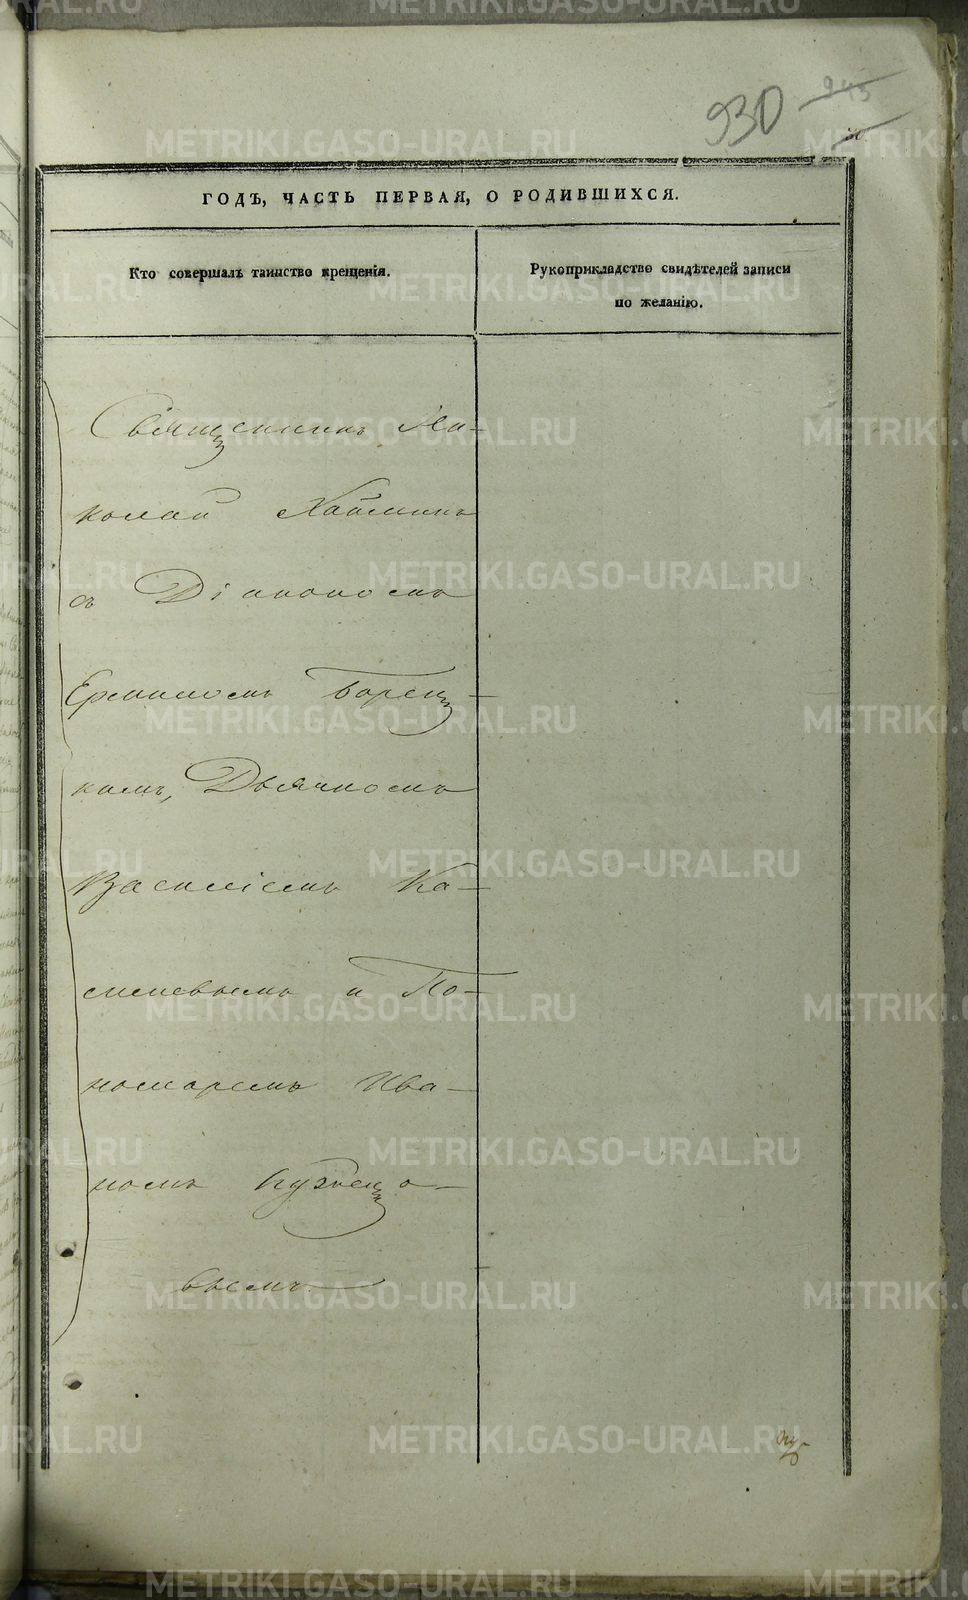 930 945
ГОДЪ, ЧАСТЬ ПЕРВАЯ, О РОДИВШИХСЯ.
Кто совершалъ таинство крещенія.
Рукоприкладство свидѣтелей записи
по желанію.
Священникъ Ни-
колай Хаймин
съ Діакономъ
Ермиломъ Борец-
кимъ, Дьячкомъ
Василіемъ Ко-
смевымъ и По-
номаремъ Ива-
номъ Кузнецо-
вымъ
METRIKI.GASO-URAL.RU